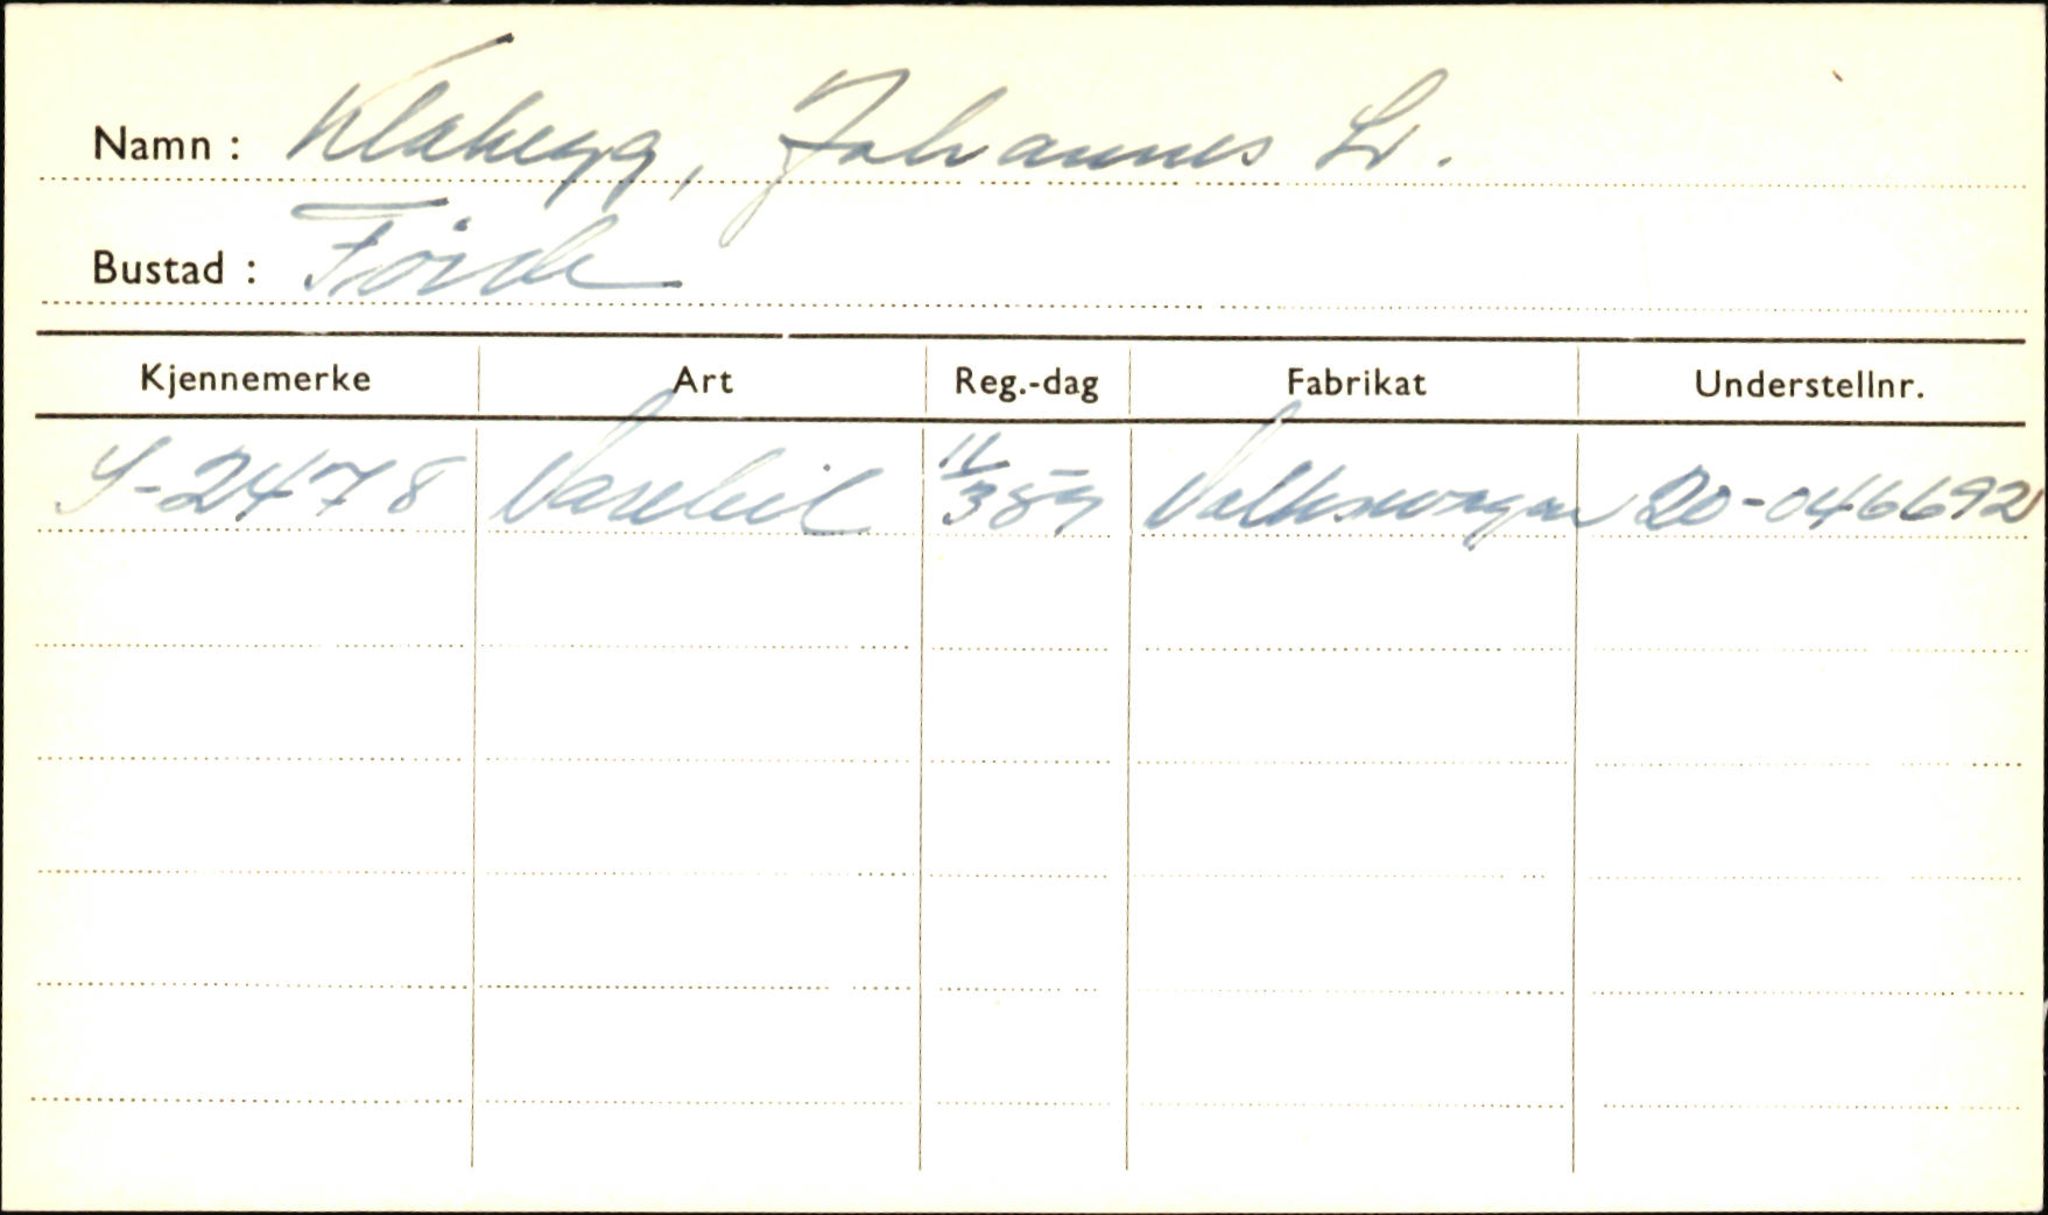 Namn : Klakegg, Johannes Lr.
Bustad : Förde
Kjennemerke Art Reg.-dag Fabrikat Understellnr.
S-2478 Varebil 11/3 59 Volkswagen 20-046692